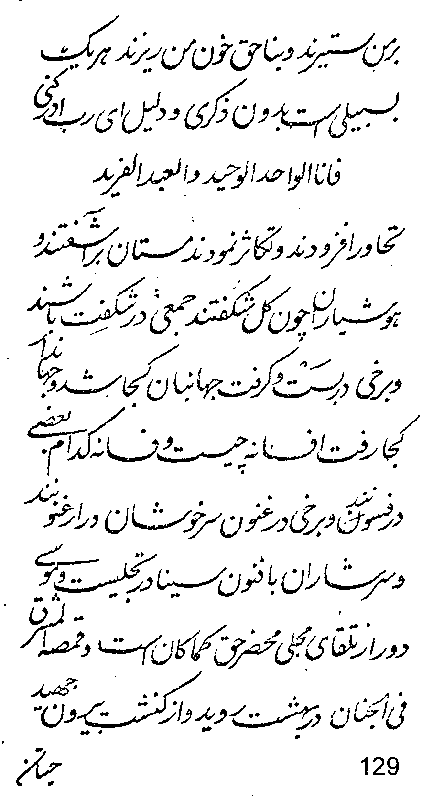 بر من ستیزند و بناحق خون من ریزند هر یک
بسبیلی است بدون ذکری و دلیل ای رب ادرکنی
فانا الواحد الوحید و العبد الفرید
تحاور افزودند و تکاثر نمودند مستان برآشفتند و
هوشیاران چون گل شکفتند جمعی در شگفت باشند
و برخی در بست و گرفت جهانیان کجا شد و جهاندار
کجا رفت افسانه چیست و فسانه کدام بعضی
در فسونند و برخی در غنون سرخوشان در ارغنونند
و سرشاران با فنون سینا در تجلیست و موسی
دور از تلقای مجلی محضر حق کماکان است و قمصه
فی الجنان در بهشت روید و از کنشت بیرون جهید
129